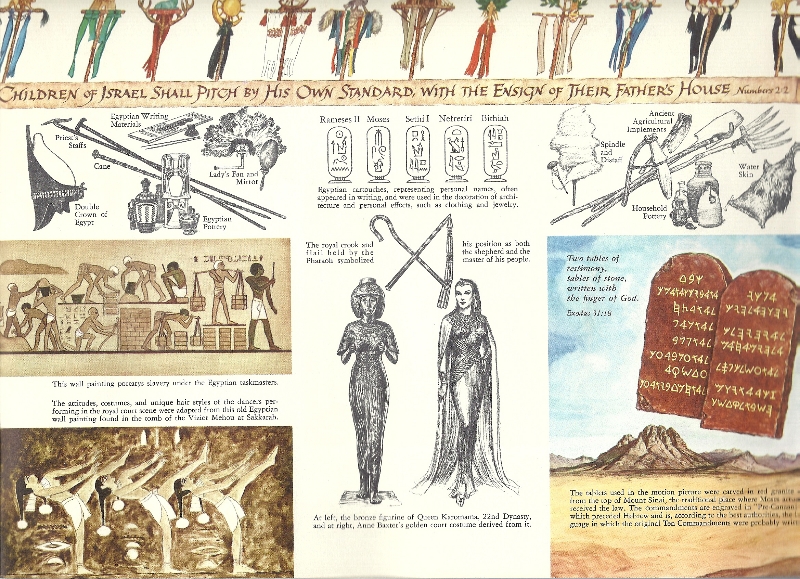 CHILDREN OF ISRAEL SHALL PITCH BY HIS OWN STANDARD, WITH THE ENSIGN OF THEIR FATHER'S HOUSE Numbers 2:2
Priest's
Staffs
Egyptian Writing
Materials
Cane
Lady's Fan and
Mirror
Double
Crown of
Egypt
Egyptian
Pottery
Rameses II Moses Sethi I Nefretiri Bithiah
Egyptian cartouches, representing personal names, often
appeared in writing, and were used in the decoration of archi-
tecture and personal effects, such as clothing and jewelry.
Ancient
Agricultural
Implements
Spindle
and
Distaff
Water
Skin
Household
Pottery
The royal crook and
flail held by the
Pharaoh symbolized
his position as both
the shepherd and the
master of his people.
This wall painting portrays slavery under the Egyptian taskmasters.
The attitudes, costumes, and unique hair styles of the dancers per-
forming in the royal court scene were adapted from this old Egyptian
wall painting found in the tomb of the Vizier Mehou at Sakkarah.
At left, the bronze figurine of Queen Karomama, 22nd Dynasty,
and at right, Anne Baxter's golden court costume derived from it.
Two tables of
testimony,
tables of stone,
written with
the finger of God.
Exodus 31:18
The tablets used in the motion picture were carved in red granite
from the top of Mount Sinai, the traditional place where Moses
received the law. The commandments are engraved in
which preceded Hebrew and is, according to the best authorities, the
guage in which the original Ten Commandments were probably